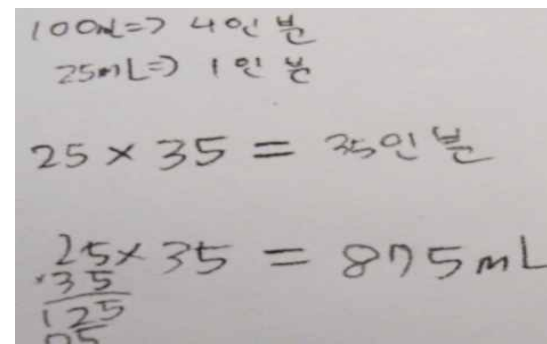 100mL=> 4인분
25mL=> 1인분
25 × 35 = 35인분
25 × 35 = 875mL
×35
125